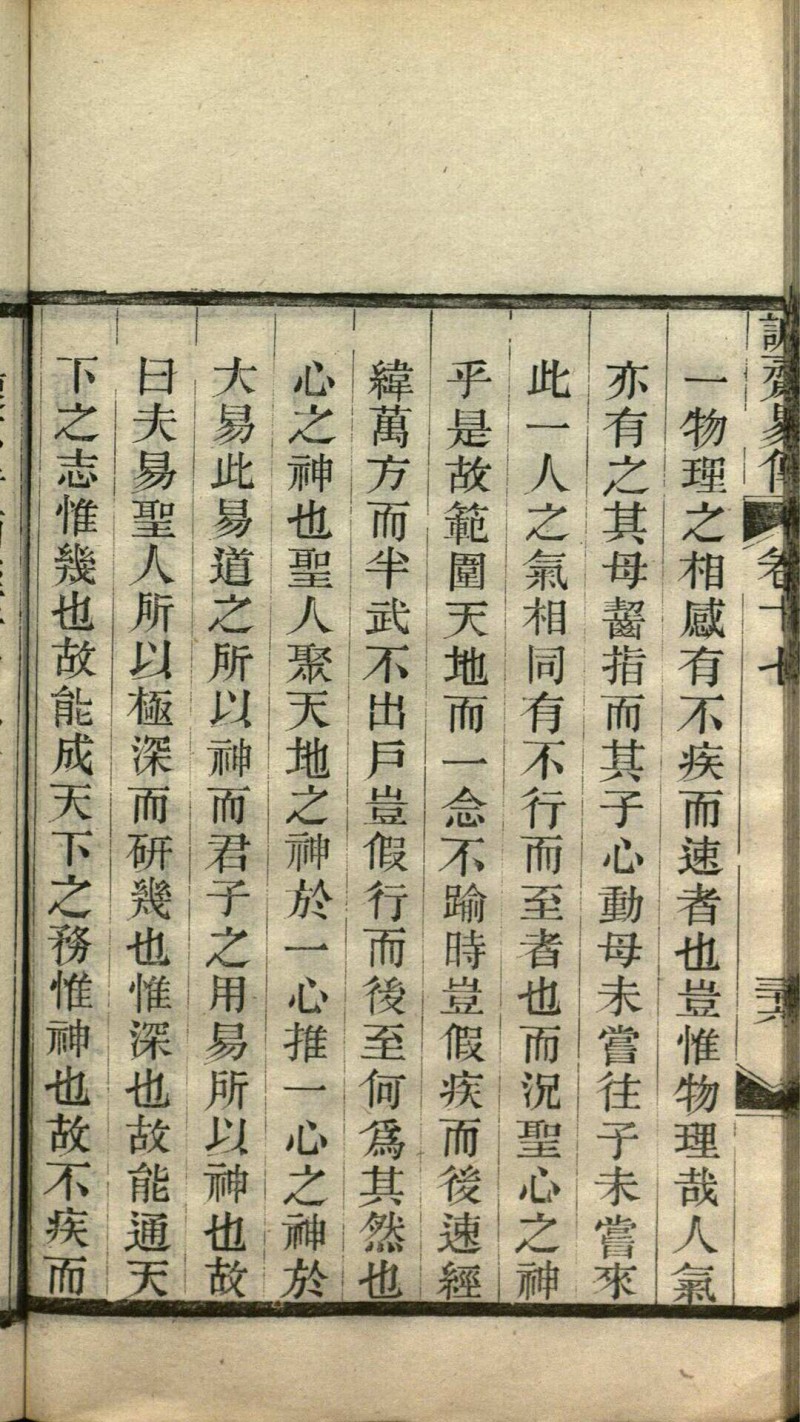 誠齋易傳 卷十七
一物理之相感有不疾而速者也豈惟物理哉人氣
亦有之其母齧指而其子心動母未嘗往子未嘗來
此一人之氣相同有不行而至者也而況聖心之神
乎是故範圍天地而一念不踰時豈假疾而後速經
緯萬方而半武不出戶豈假行而後至何爲其然也
心之神也聖人聚天地之神於一心推一心之神於
大易此易道之所以神而君子之用易所以神也故
曰夫易聖人所以極深而研幾也惟深也故能通天
下之志惟幾也故能成天下之務惟神也故不疾而